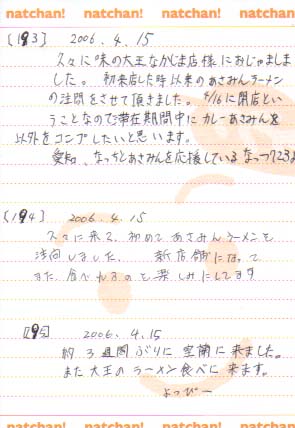 natchan! natchan! natchan! natchan!
[193] 2006.4.15
久々に味の大王なかじま店様におじゃましま
した。 初来店した時以来のあさみんラーメン
の注文をさせて頂きました。4/16に閉店とい
うことなので滞在期間中にカレーあさみんを
以外をコンプしたいと思います。
愛知、なっちとあさみんを応援しているなっつ723
[194] 2006.4.15
久々に来て、初めてあさみんラーメンを
注同しました。 新店舗になって
また、食べれるのを楽しみにしてます
[195] 2006.4.15
約3週間ぶりに室蘭に来ました。
また大王のラーメン食べに来ます。
よっぴー
natchan! natchan! natchan! natchan!